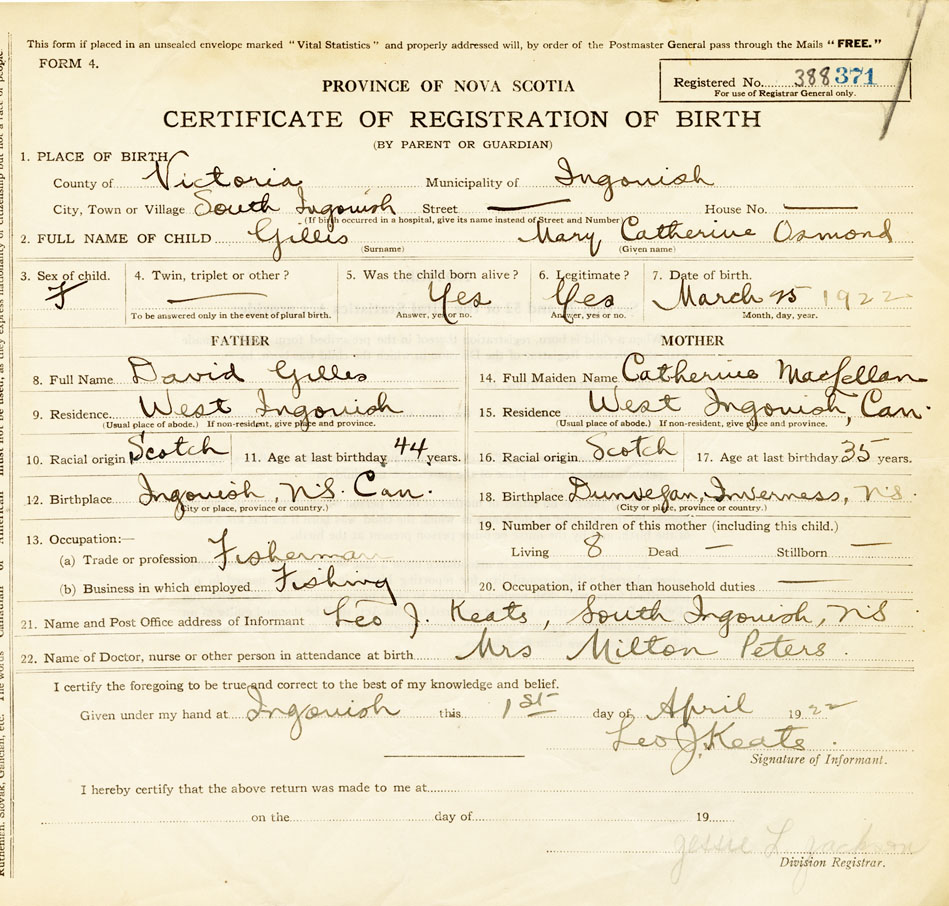 This form if placed in an unsealed envelope marked "Vital Statistics" and properly addressed will, by order of the Postmaster General pass through the Mails "FREE."
FORM 4.
Registered No. 388371
For use of Registrar General only.
PROVINCE OF NOVA SCOTIA
CERTIFICATE OF REGISTRATION OF BIRTH
(BY PARENT OR GUARDIAN)
1. PLACE OF BIRTH
County of Victoria Municipality of Ingonish
City, Town or Village South Ingonish Street — House No. —
(If birth occurred in a hospital, give its name instead of Street and Number)
2. FULL NAME OF CHILD Gillis Mary Catherine Osmond
(Surname) (Given name)
3. Sex of child. 4. Twin, triplet or other? 5. Was the child born alive? 6. Legitimate? 7. Date of birth.
F — Yes Yes March 25 1922
To be answered only in the event of plural birth. Answer, yes or no. Answer, yes or no. Month, day, year.
FATHER
8. Full Name David Gillis
9. Residence West Ingonish
(Usual place of abode.) If non-resident, give place and province.
10. Racial origin Scotch 11. Age at last birthday 44 years.
12. Birthplace Ingonish, N.S. Can.
(City or place, province or country.)
13. Occupation:—
(a) Trade or profession Fisherman
(b) Business in which employed Fishing
MOTHER
14. Full Maiden Name Catherine MacLellan
15. Residence West Ingonish, Can.
(Usual place of abode.) If non-resident, give place and province.
16. Racial origin Scotch 17. Age at last birthday 35 years.
18. Birthplace Dunvegan, Inverness, N.S.
(City or place, province or country.)
19. Number of children of this mother (including this child.)
Living 8 Dead — Stillborn —
20. Occupation, if other than household duties —
21. Name and Post Office address of Informant Leo J. Keats, South Ingonish, N.S
22. Name of Doctor, nurse or other person in attendance at birth Mrs Milton Peters.
I certify the foregoing to be true and correct to the best of my knowledge and belief.
Given under my hand at Ingonish this 1st day of April 1922
Leo J. Keats.
Signature of Informant.
I hereby certify that the above return was made to me at
on the day of 19
Jessie L Jackson
Division Registrar.